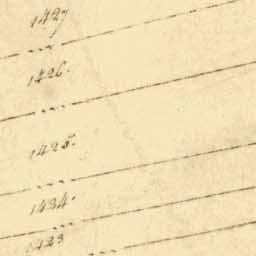 1427
1426.
1425.
1434.
1423